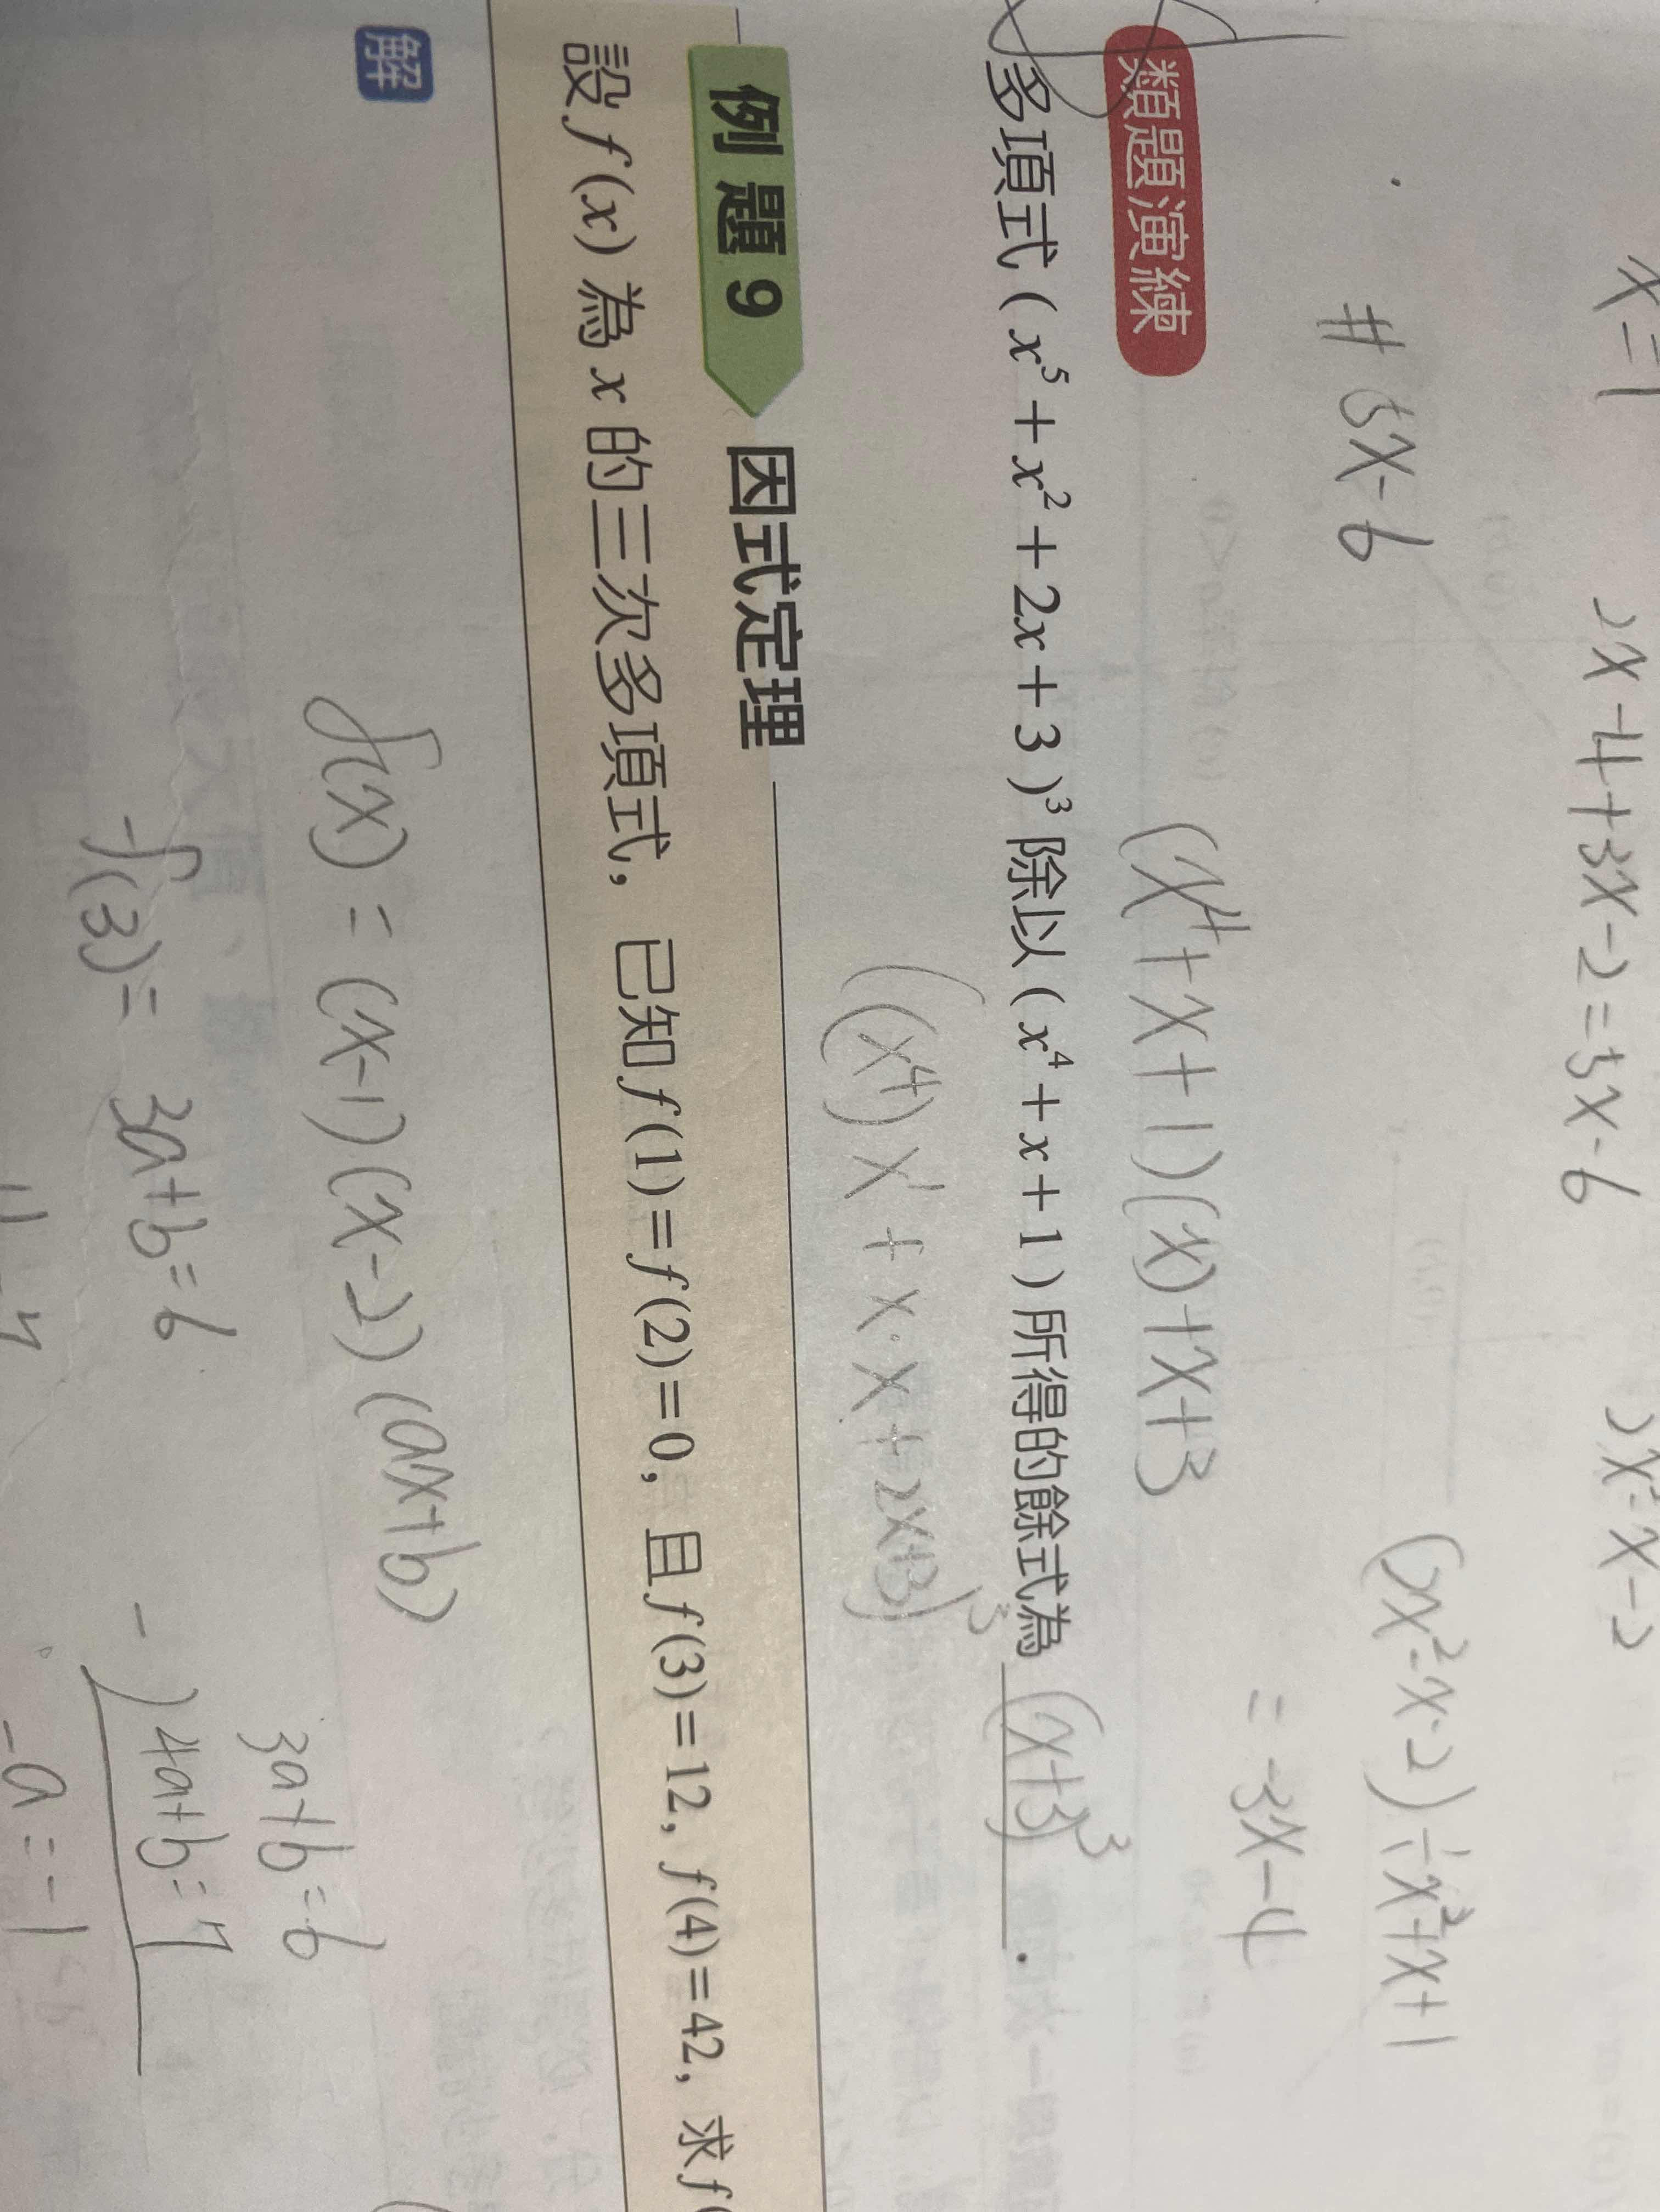 x=1
2x-4+3x-2=5x-6
2x²-x-2
# 5x-6
(2x²-x-2)÷x²+x+1
= -3x-4
類題演練
(x⁴+x+1)(x)+x+3
多項式(x⁵+x²+2x+3)³除以(x⁴+x+1)所得的餘式為 (x+3)³ .
((x⁴)x¹+x·x+2x+3)³
例題9 因式定理
設f(x)為x的三次多項式，已知f(1)=f(2)=0，且f(3)=12，f(4)=42，求f(
解
f(x)=(x-1)(x-2)(ax+b)
3a+b=6
f(3)= 3a+b=6
-)4a+b=7
-a=-1